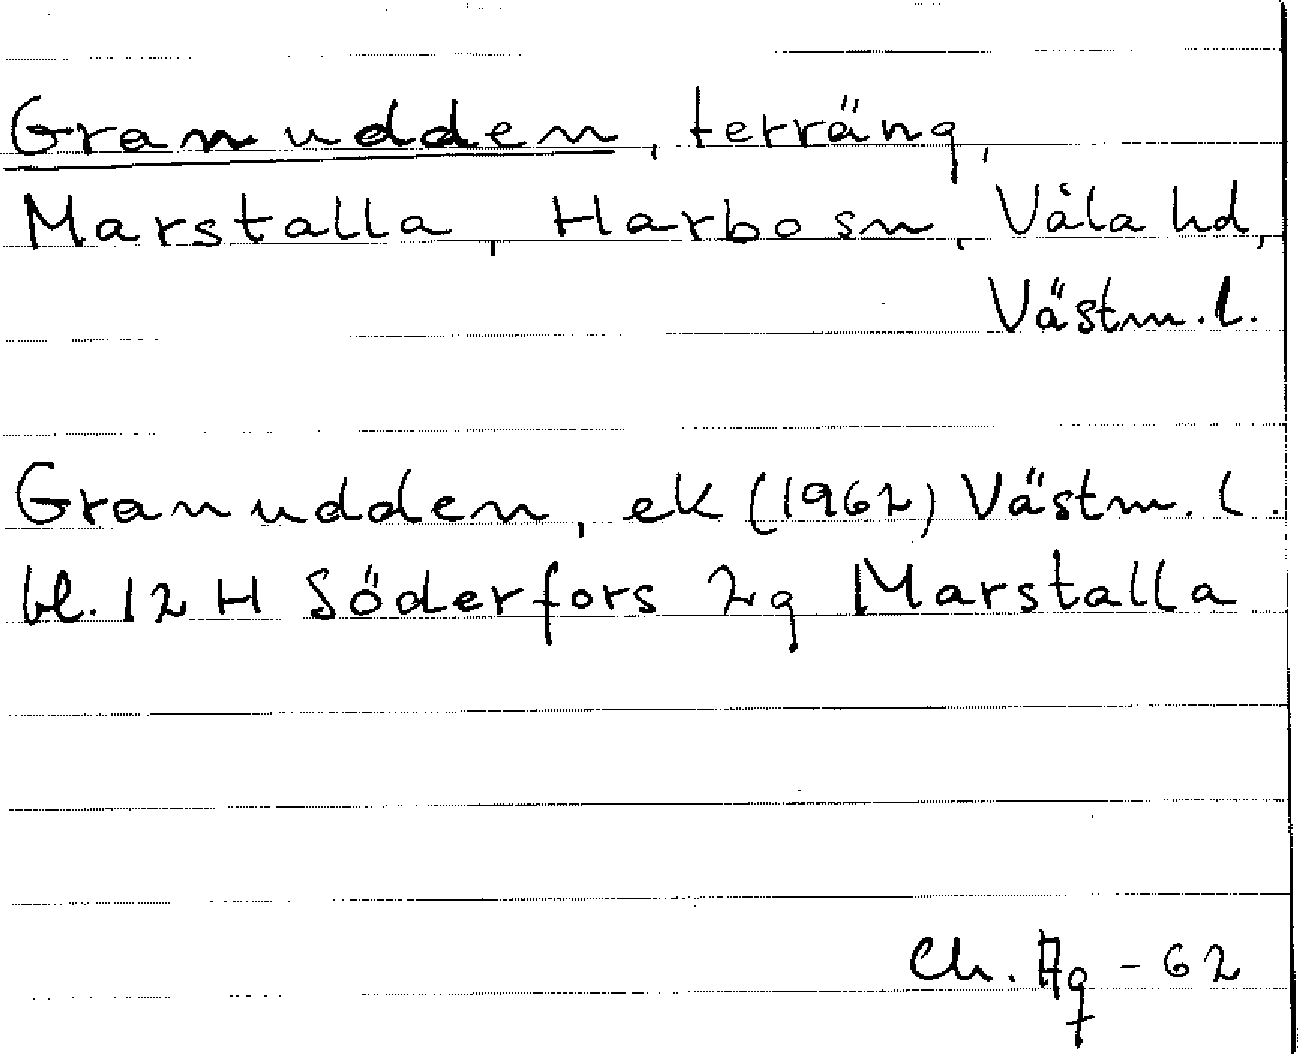 Granudden, terräng,
Marstalla, Harbo sn, Våla hd,
Västm. l.
Granudden, ek (1962) Västm. l.
bl. 12 H Söderfors 2g Marstalla
Ch. Ag -62